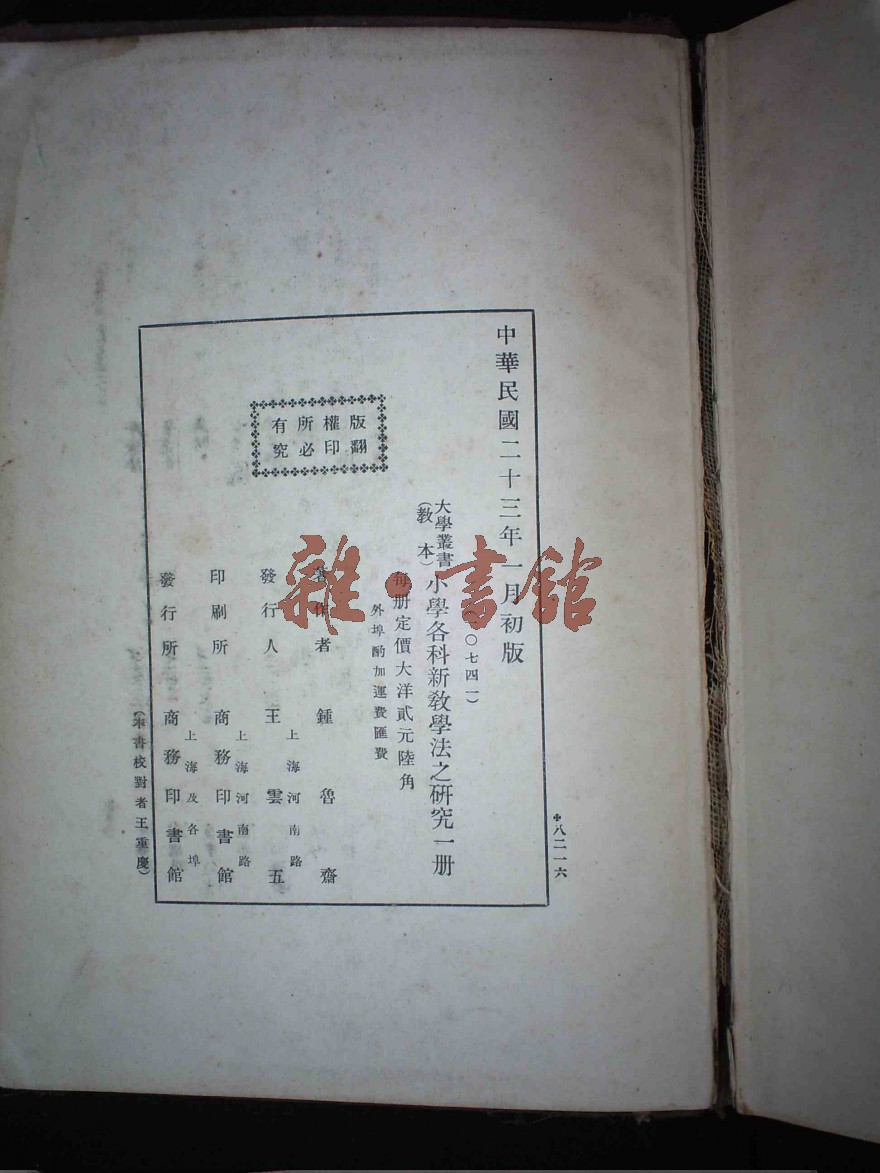 八二一六
中華民國二十三年一月初版
大學叢書
(教本)
小學各科新教學法之研究一册
〇七四一)
每册定價大洋貳元陸角
外埠酌加運費匯費
版權所有
翻印必究
著作者 鍾魯齋
上海河南路
發行人 王雲五
上海河南路
印刷所 商務印書館
上海及各埠
發行所 商務印書館
(本書校對者王重慶)
雜·書館